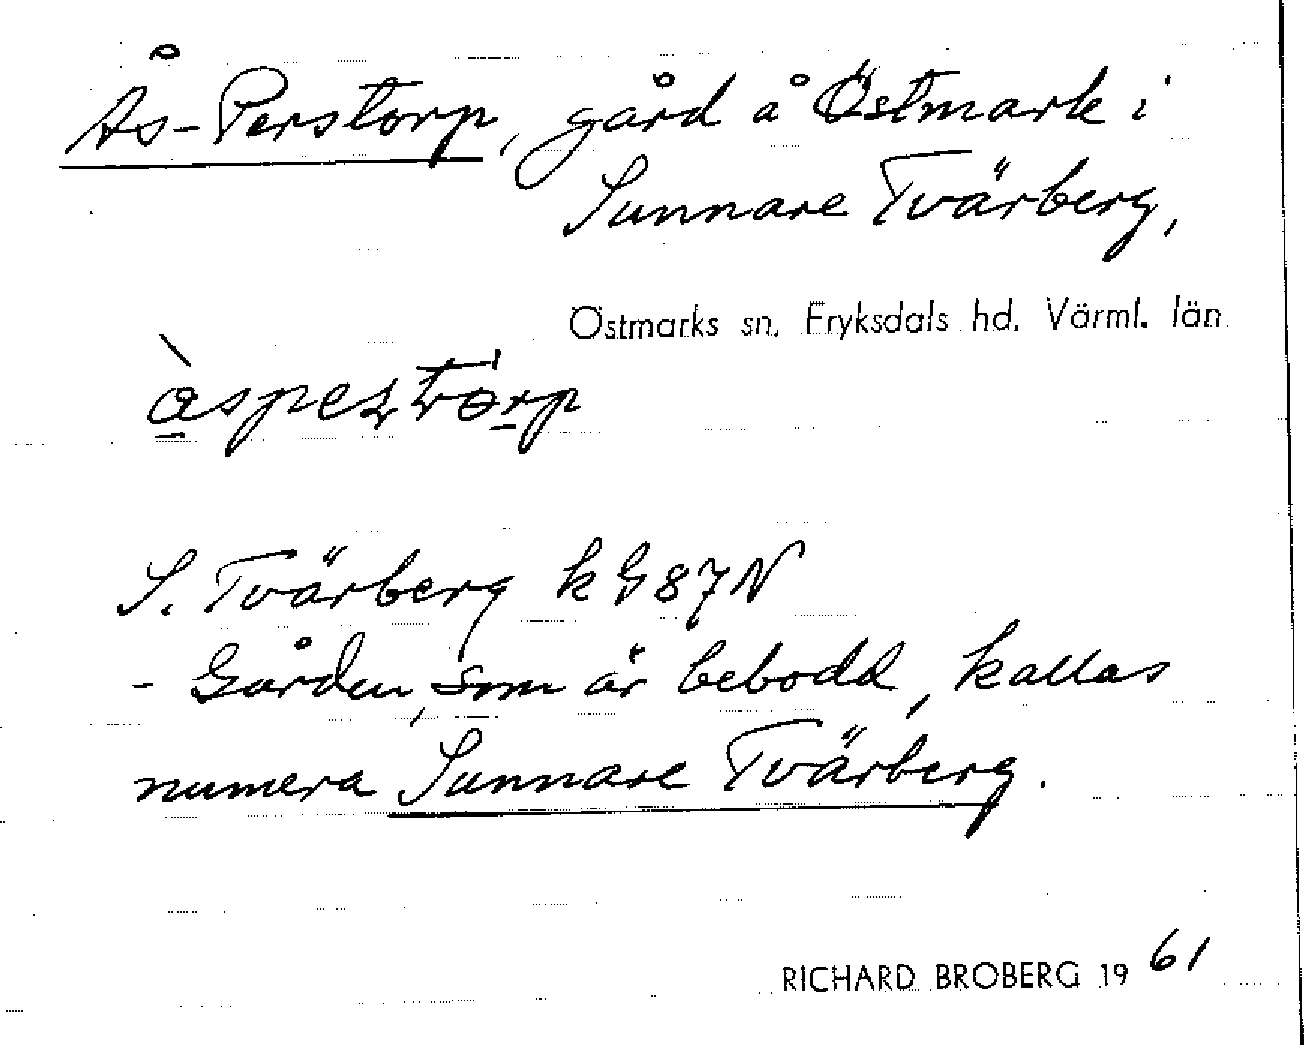 Ås-Perstorp, gård å Östmark i
Sunnare Tvärberg,
Östmarks sn. Fryksdals hd. Värml. län
S. Tvärberg k G87N
- Gården, som är bebodd, kallas
numera Sunnare Tvärberg.
RICHARD BROBERG 1961